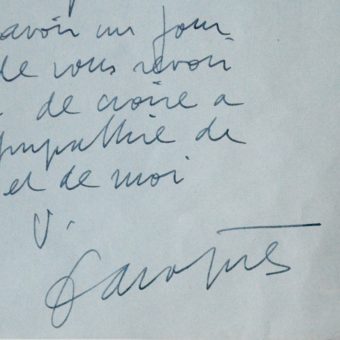 avoir un jour
de vous revoir
de croire a
sympathie de
et de moi
V.
Jacques